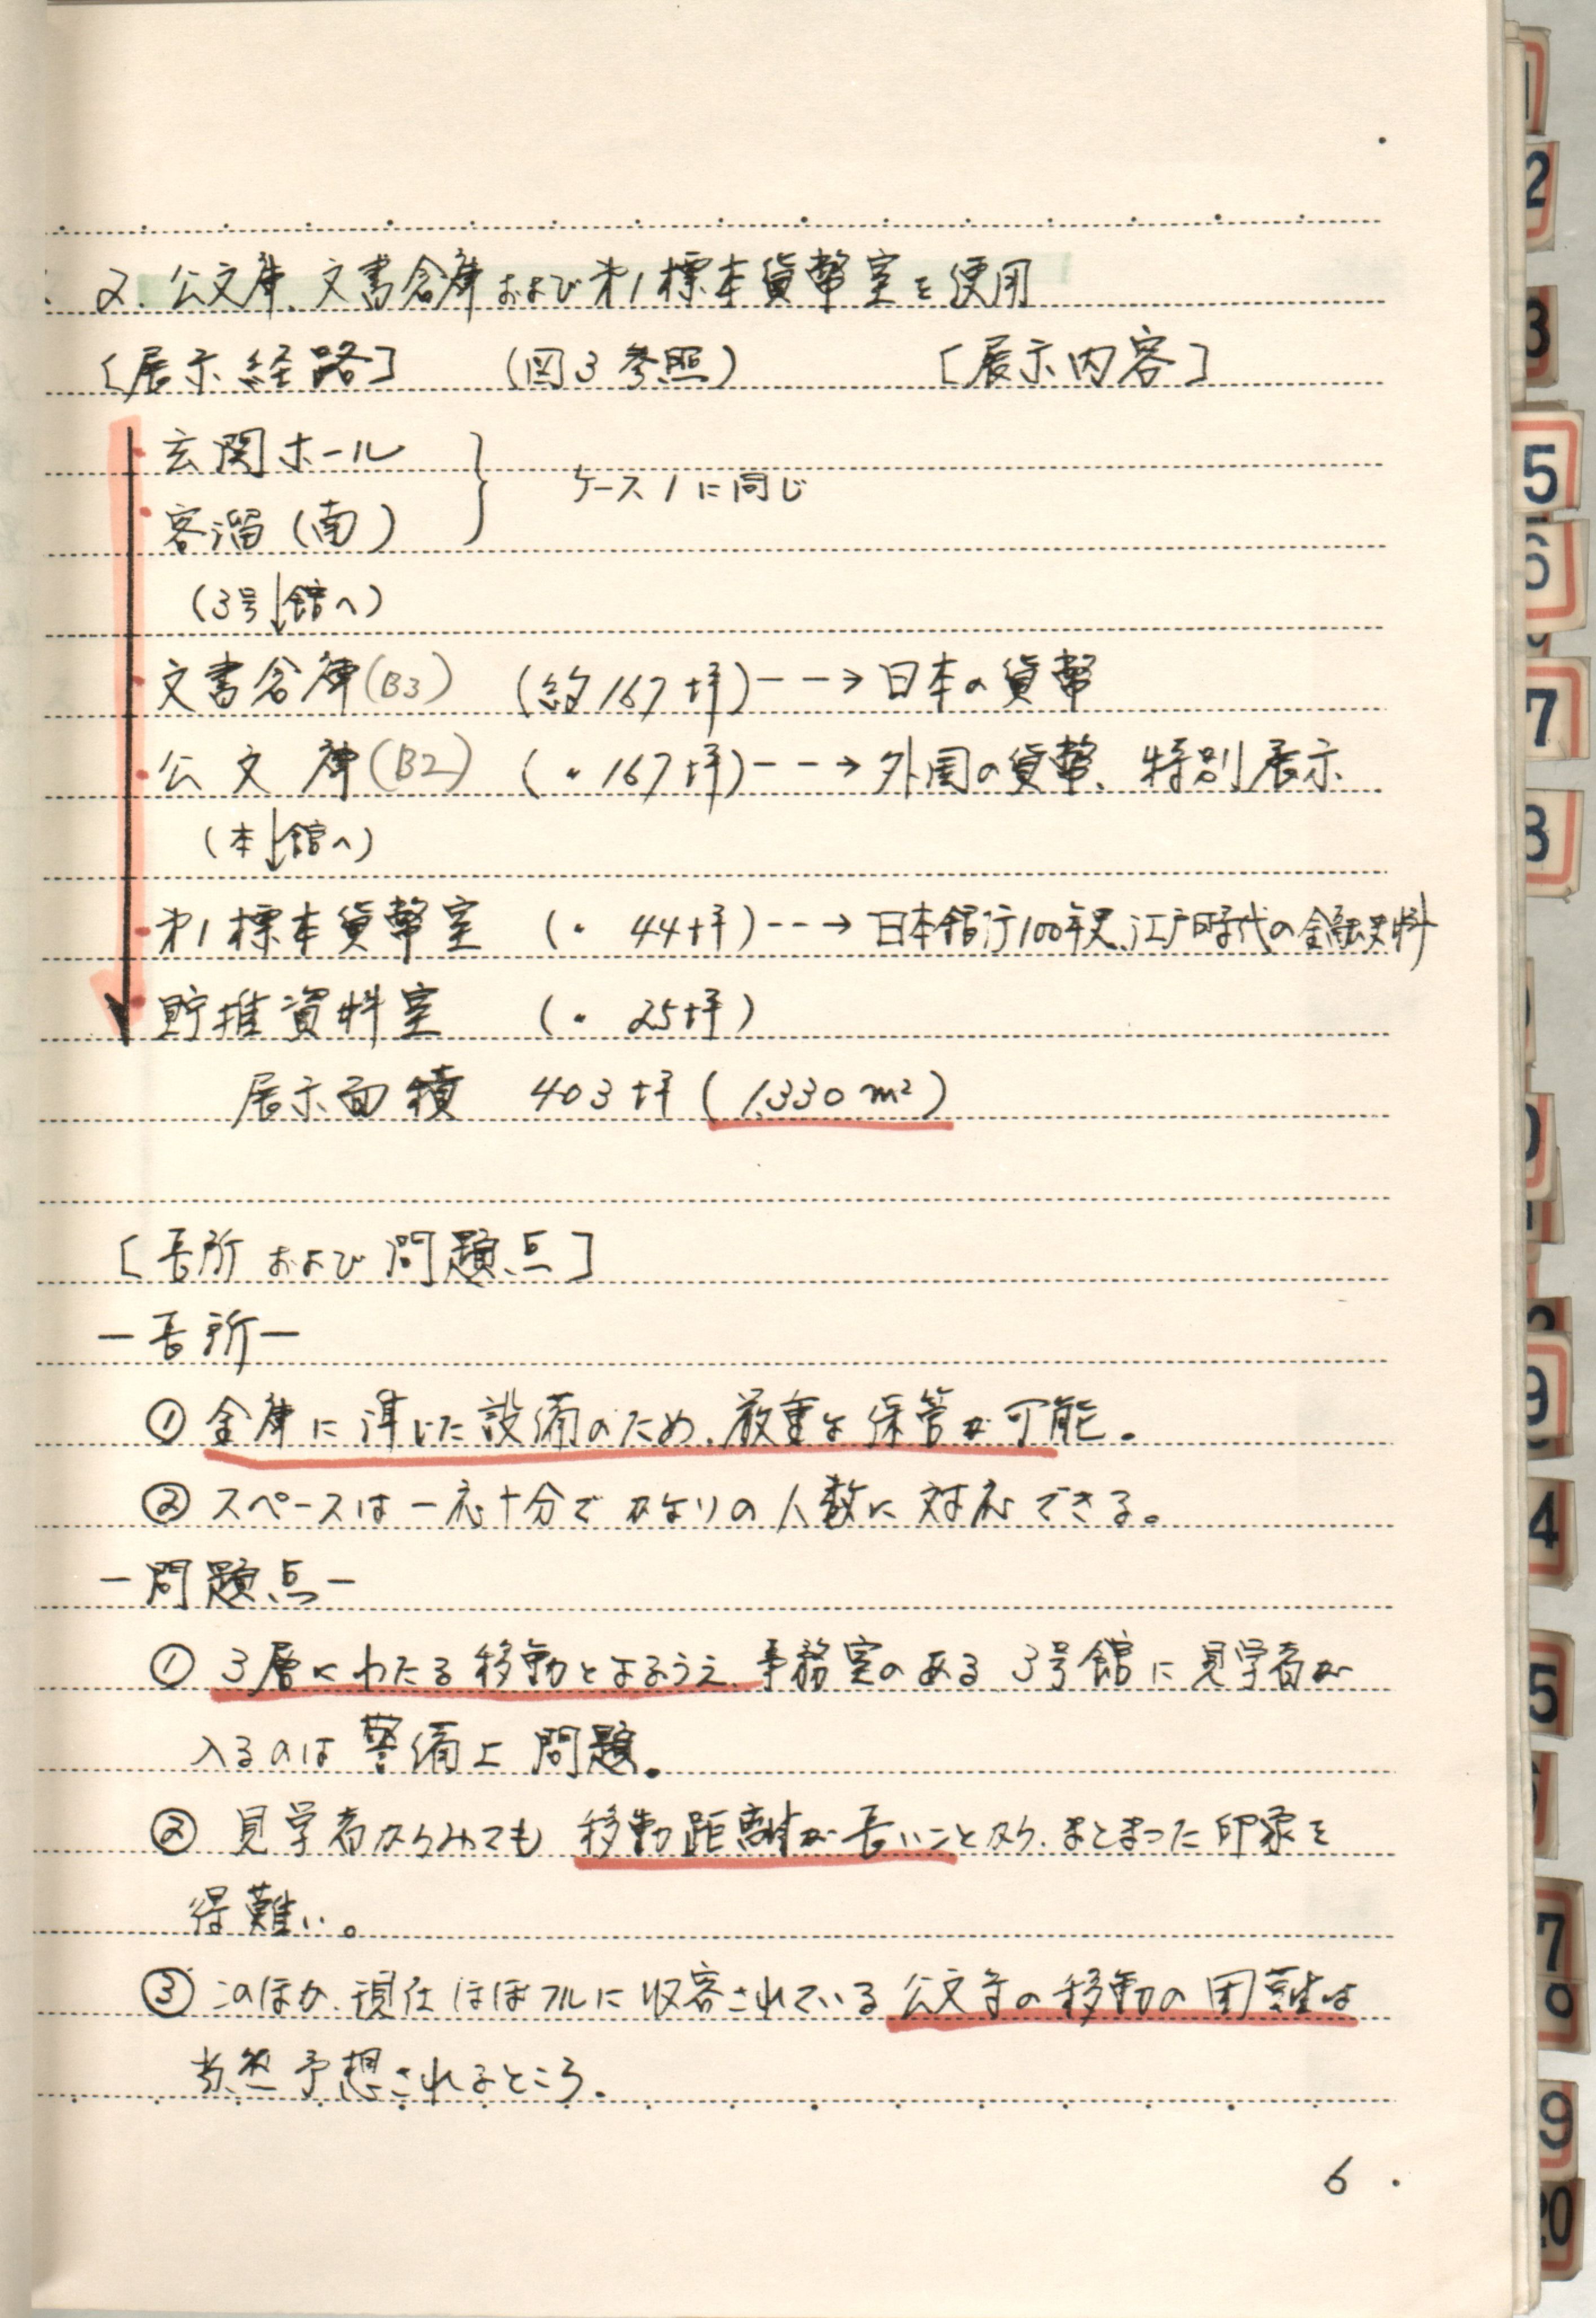 2. 公文庫、文書倉庫および才1標本貨幣室を使用
[展示経路] (図3参照) [展示内容]
・玄関ホール
ケース1に同じ
・客溜(南)
(3号↓館へ)
・文書倉庫(B3) (約167坪)--→日本の貨幣
・公文庫(B2) (〃167坪)--→外国の貨幣、特別展示
(本↓館へ)
・才1標本貨幣室 (〃 44坪)--→日本銀行100年史、江戸時代の金融史料
・貯推資料室 (〃 25坪)
展示面積 403坪(1,330m²)
[長所および問題点]
-長所-
① 金庫に準じた設備のため、厳重な保管が可能。
② スペースは一応十分でかなりの人数に対応できる。
-問題点-
① 3層にわたる移動となるうえ、事務室のある3号館に見学者が
入るのは警備上問題。
② 見学者からみても移動距離が長いことから、まとまった印象を
得難い。
③ このほか、現在ほぼフルに収容されている公文等の移動の困難は
当然予想されるところ。
6
1
2
3
5
6
7
8
9
4
5
7
9
20